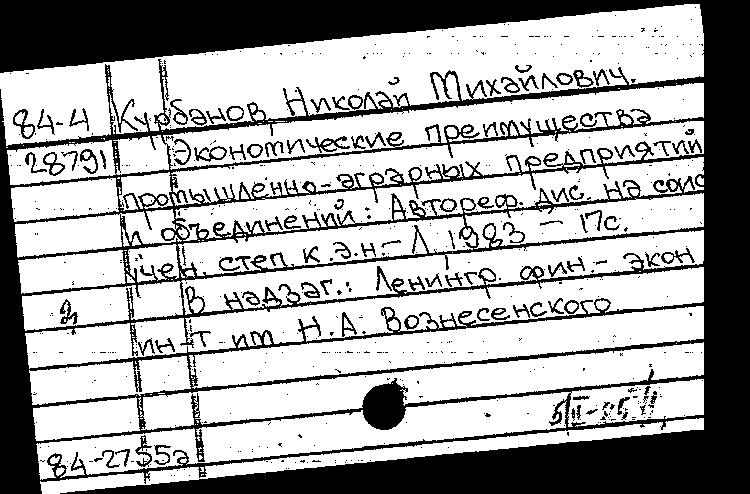 84-4 Курбанов, Николай Михайлович.
28791 Экономические преимущества
промышленно-аграрных предприятий
и объединений: Автореф. дис. на соис
учен. степ. к.э.н.- Л, 1983 - 17с.
В надзаг.: Ленингр. фин.- экон.
ин-т им. Н.А. Вознесенского
84-2755а